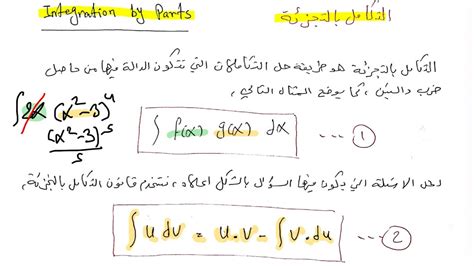 Integration by Parts التكامل بالتجزئة
التكامل بالتجزئة هو طريقة حل التكاملات التي تتكون الدالة فيها من حاصل
ضرب دالتين، كما يوضح المثال التالي،
∫2x (x²-3)⁴
(x²-3)⁵
5
∫ f(x) g(x) dx --- ①
لحل الاسئلة التي يكون فيها السؤال بالشكل اعلاه، نستخدم قانون التكامل بالتجزئة،
∫u dv = u.v - ∫v.du --- ②